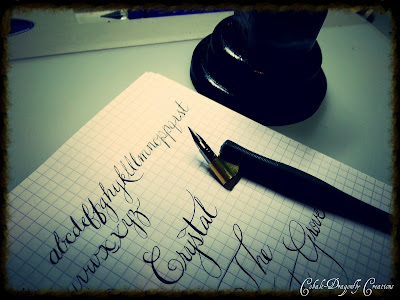 abcdeffghijklllmnoppqrst
uvwxxyz
Crystal
The
Grove
Cobalt~Dragonfly Creations